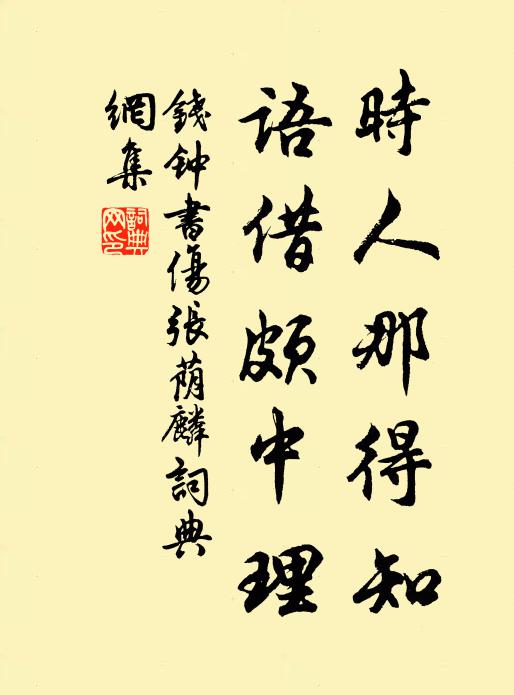 時人那得知
語借頗中理
錢鈡書傷張蔭麟詞典
網集
詞典網印